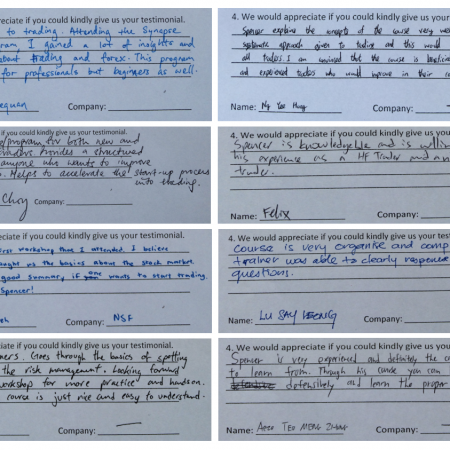 eciate if you could kindly give us your testimonial.
to trading. Attending the Synapse
ram, I gained a lot of insights and
about trading and forex. This program
for professionals but beginners as well.
equan Company:
4. We would appreciate if you could kindly give us your
Spencer explains the concepts of the course very we
systematic approach given to trading and this would
all traders. I am convinced that the course is beneficial
and experienced traders who would improve in their
Name: Ng Yee Company:
if you could kindly give us your testimonial.
program for both new and
provides a structured
anyone who wants to improve
Helps to accelerate the start-up process
into trading.
Choy Company:
4. We would appreciate if you could kindly give us your test
Spencer is knowledgeable and is willi
his experience as a HF Trader and an
trader.
Name: Felix Company:
eciate if you could kindly give us your testimonial.
first workshop that I attended. I believe
taught us the basics about the stock market
good summary if one wants to start trading.
Spencer!
eh Company: NSF
4. We would appreciate if you could kindly give us your test
Course is very organise and comp
trainer was able to clearly response
questions.
Name: LU SAY Company:
ciate if you could kindly give us your testimonial.
ners. Goes through the basics of spotting
the risk management. Looking forward
workshop for more practice and handson.
course is just nice and easy to understand.
Company:
4. We would appreciate if you could kindly give us your te
Spencer is very experienced and definitely the
to learn from. Through his you can
defensively and learn the proper
Name: TEO MENG Company: